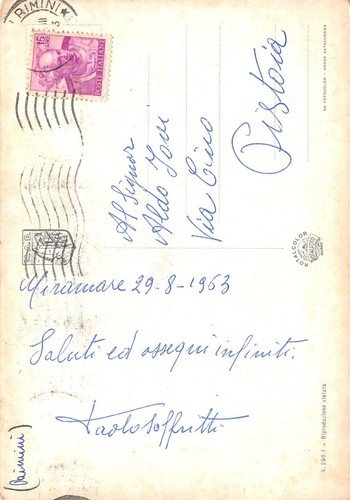 RIMINI
15
POSTE ITALIANE
Al Signor
Aldo
Via Cino
Pistoia
Miramare 29-8-1963
Saluti ed ossequi infiniti.
Paolo Soffritti
(Rimini)
ROTALCOLOR
V. 286.1 - Riproduzione vietata